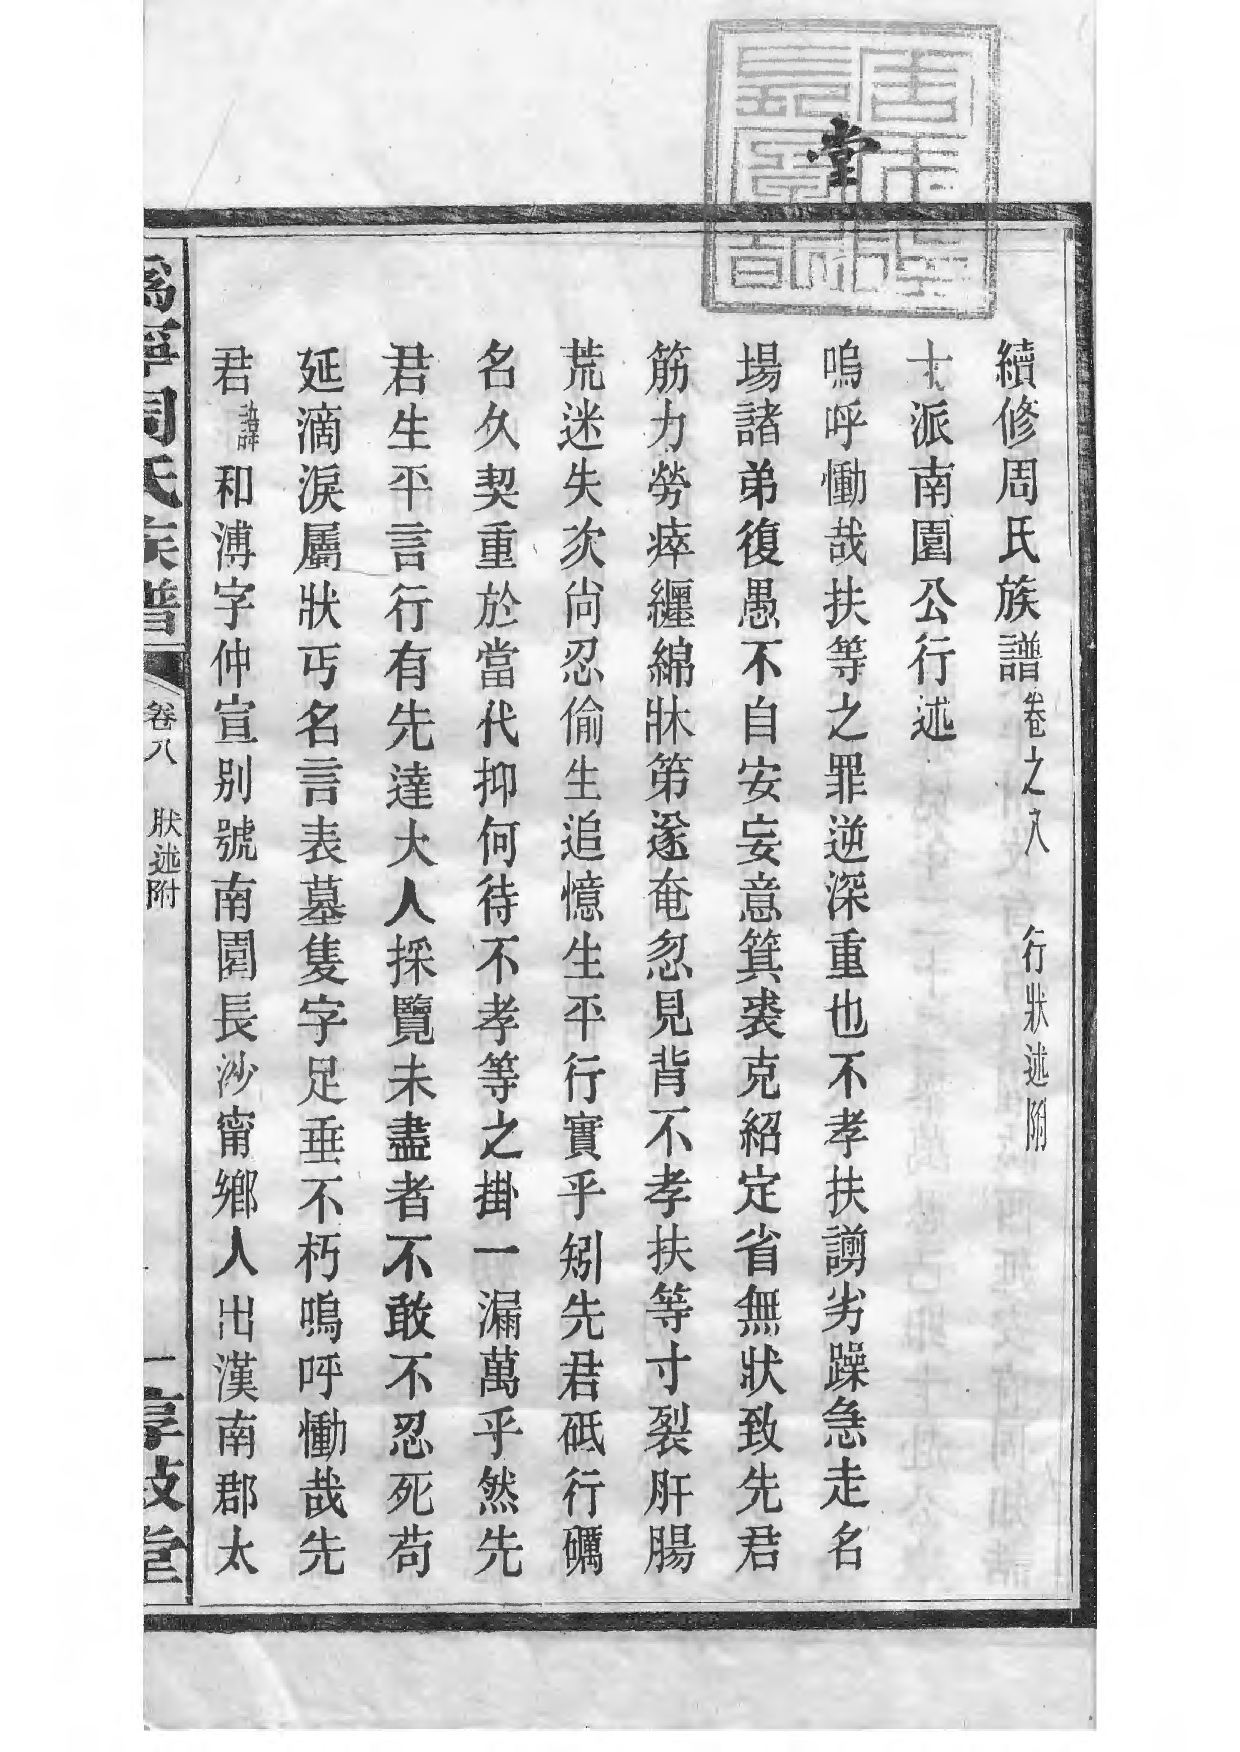 堂
續修周氏族譜卷之八 行狀述附
十派南園公行述
嗚呼慟哉扶等之罪逆深重也不孝扶謭劣躁急走名
場諸弟復愚不自安妄意箕裘克紹定省無狀致先君
筋力勞瘁纏綿牀第遂奄忽見背不孝扶等寸裂肝腸
荒迷失次尙忍偷生追憶生平行實乎矧先君砥行礪
名久契重於當代抑何待不孝等之掛一漏萬乎然先
君生平言行有先達大人採覽未盡者不敢不忍死苟
延滴淚屬狀丐名言表墓隻字足垂不朽嗚呼慟哉先
君諱和溥字仲宣別號南園長沙甯鄉人出漢南郡太
潙寧周氏族譜 卷八 狀述附 一 享敍堂